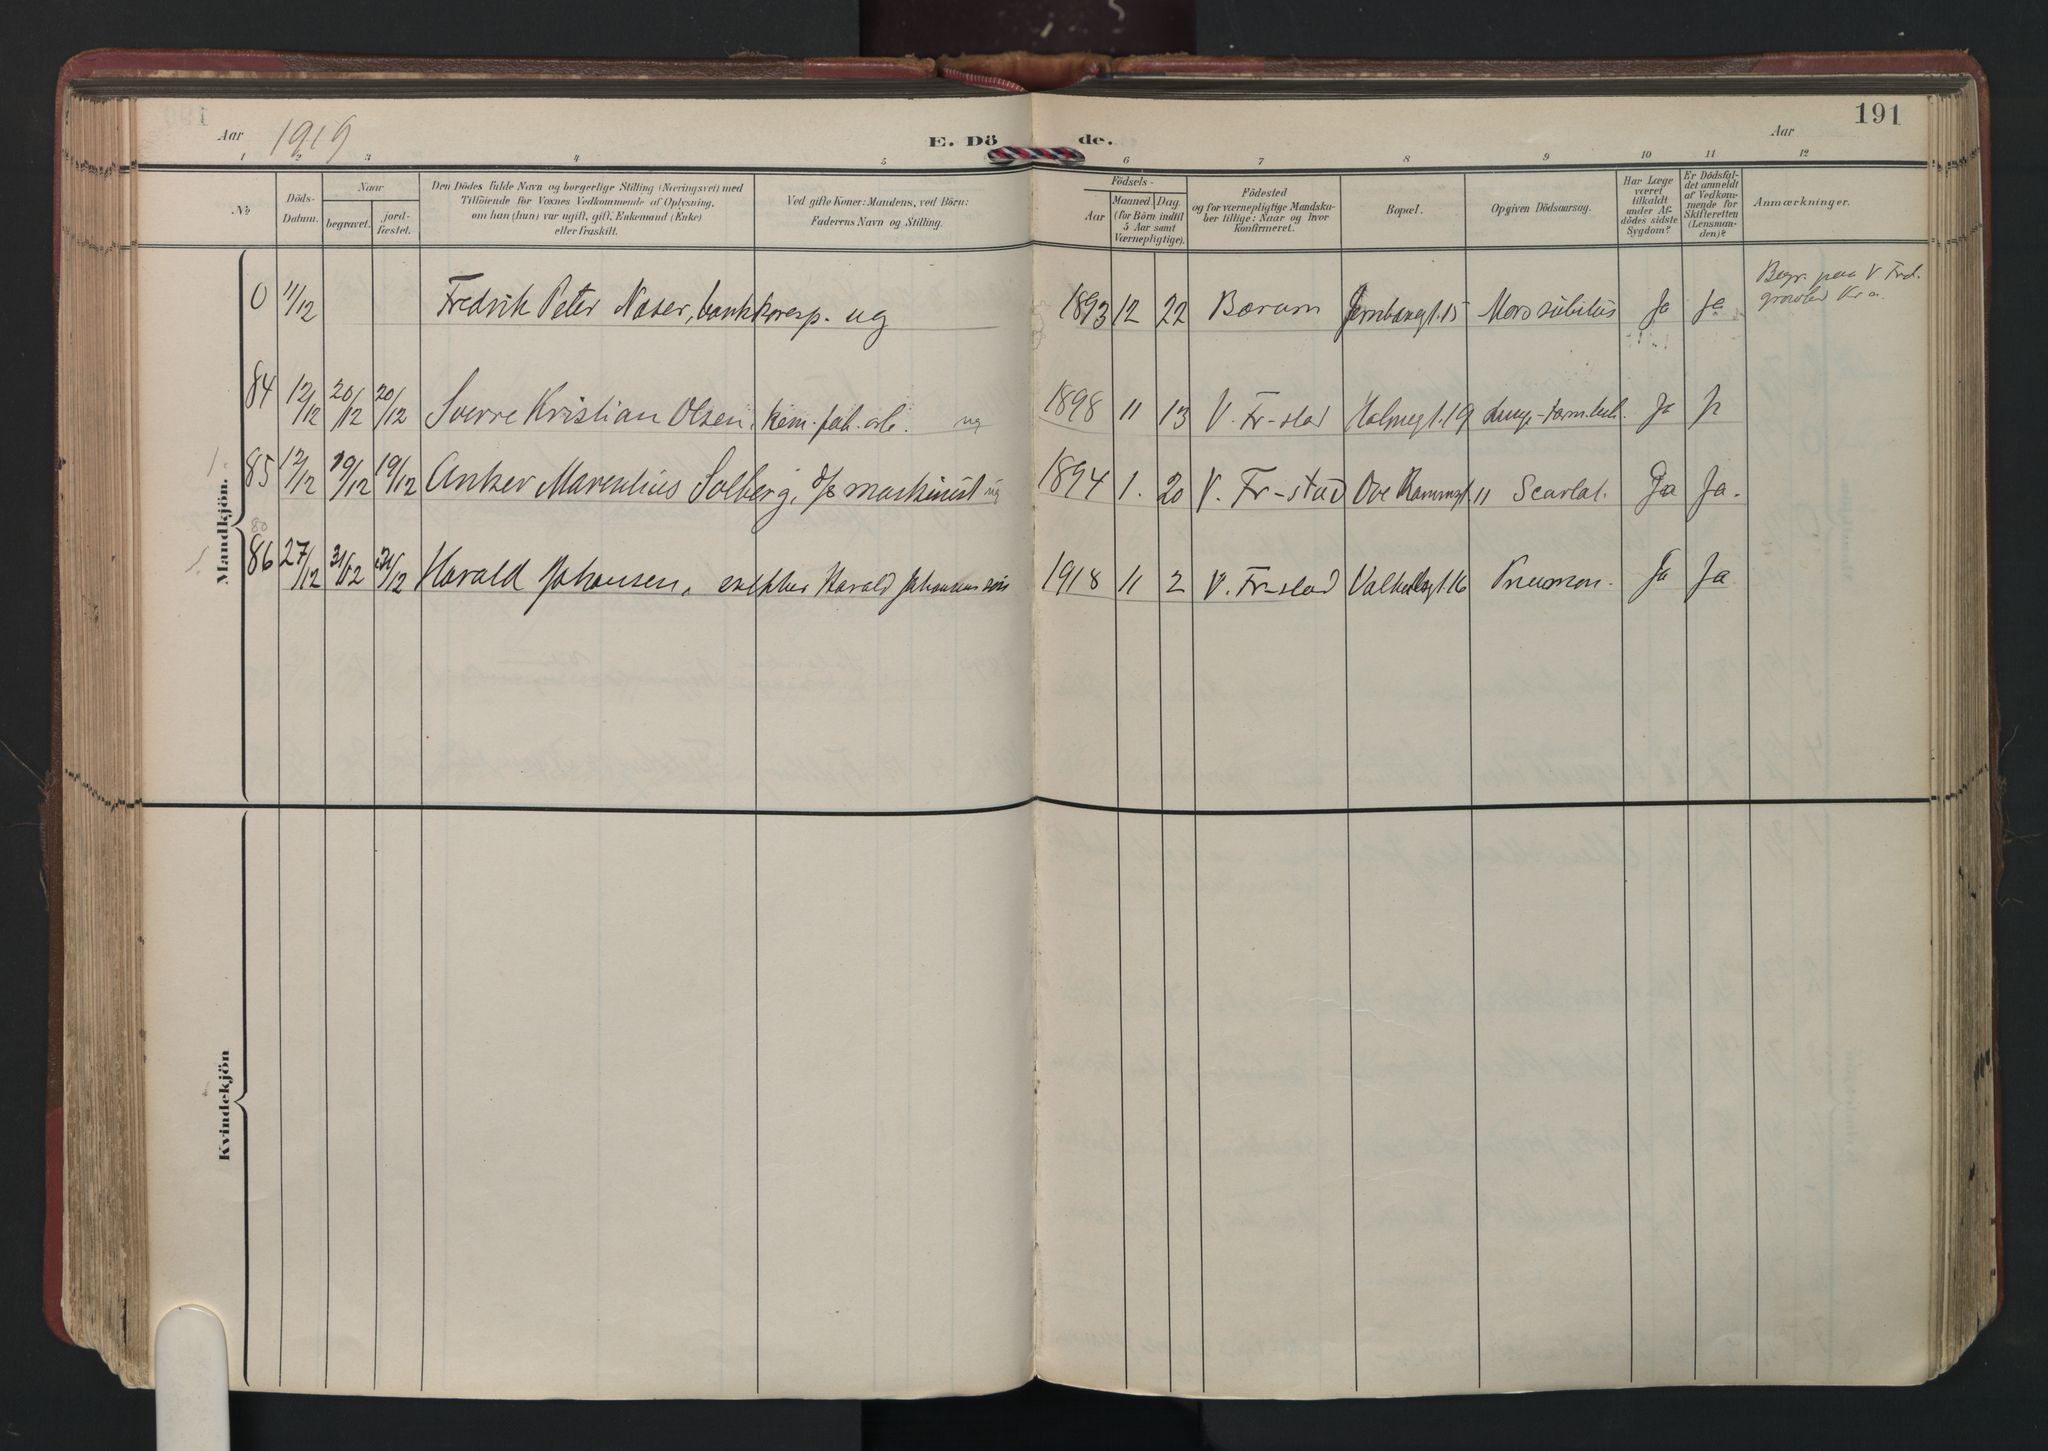 191
Aar 1919
E. Dö de.
Aar
1 2 3 4 5 6 7 8 9 10 11 12
№
Döds-
Datum.
Naar
begravet.
jord-
fæstet.
Den Dödes fulde Navn og borgerlige Stilling (Næringsvei) med
Tilföiende for Voxnes Vedkommende af Oplysning,
om han (hun) var ugift, gift, Enkemand (Enke)
eller fraskilt.
Ved gifte Koner: Mandens, ved Börn:
Faderens Navn og Stilling.
Födsels-
Aar
Maaned Dag.
(for Börn indtil
5 Aar samt
Værnepligtige).
Födested
og for værnepligtige Mandska-
ber tillige: Naar og hvor
konfirmeret.
Bopæl.
Opgiven Dödsaarsag.
Har Læge
været
tilkaldt
under Af-
dödes sidste
Sygdom?
Er Dödsfal-
det anmeldt
af Vedkom-
mende for
Skifteretten
(Lensman-
den)?
Anmærkninger.
Mandkjön.
0 11/12 Fredrik Peter Naser, bankkoresp. ug 1893 12 22 Bærum Jernbanegt. 15 Mors subitus Ja Ja Begr. paa V. Frel.
gravlund Kr.a.
84 12/12 20/12 20/12 Sverre Kristian Olsen, kem. fab. arb. ug 1898 11 13 V. Fr-stad Holmegt. 19 Ja Ja
85 12/12 19/12 19/12 Anker Marentius Solberg, d/s maskinist ug 1894 1. 20 V. Fr-stad Ove Rammgt. 11 Scarlat. Ja Ja.
80
86 27/12 31/12 31/12 Harald Johansen, Harald Johansens sön 1918 11 2 V. Fr-stad 16 Pneumon. Ja Ja
Kvindekjön